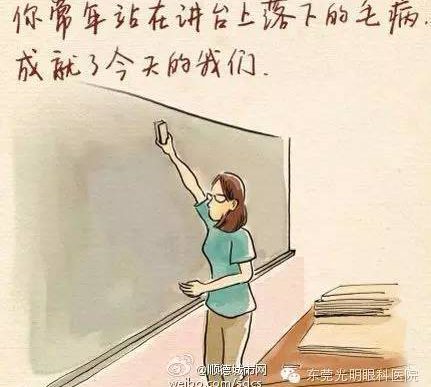 你常年站在讲台上落下的毛病.
成就了今天的我们.
@顺德城市网
weibo.com/sdcs
东莞光明眼科医院